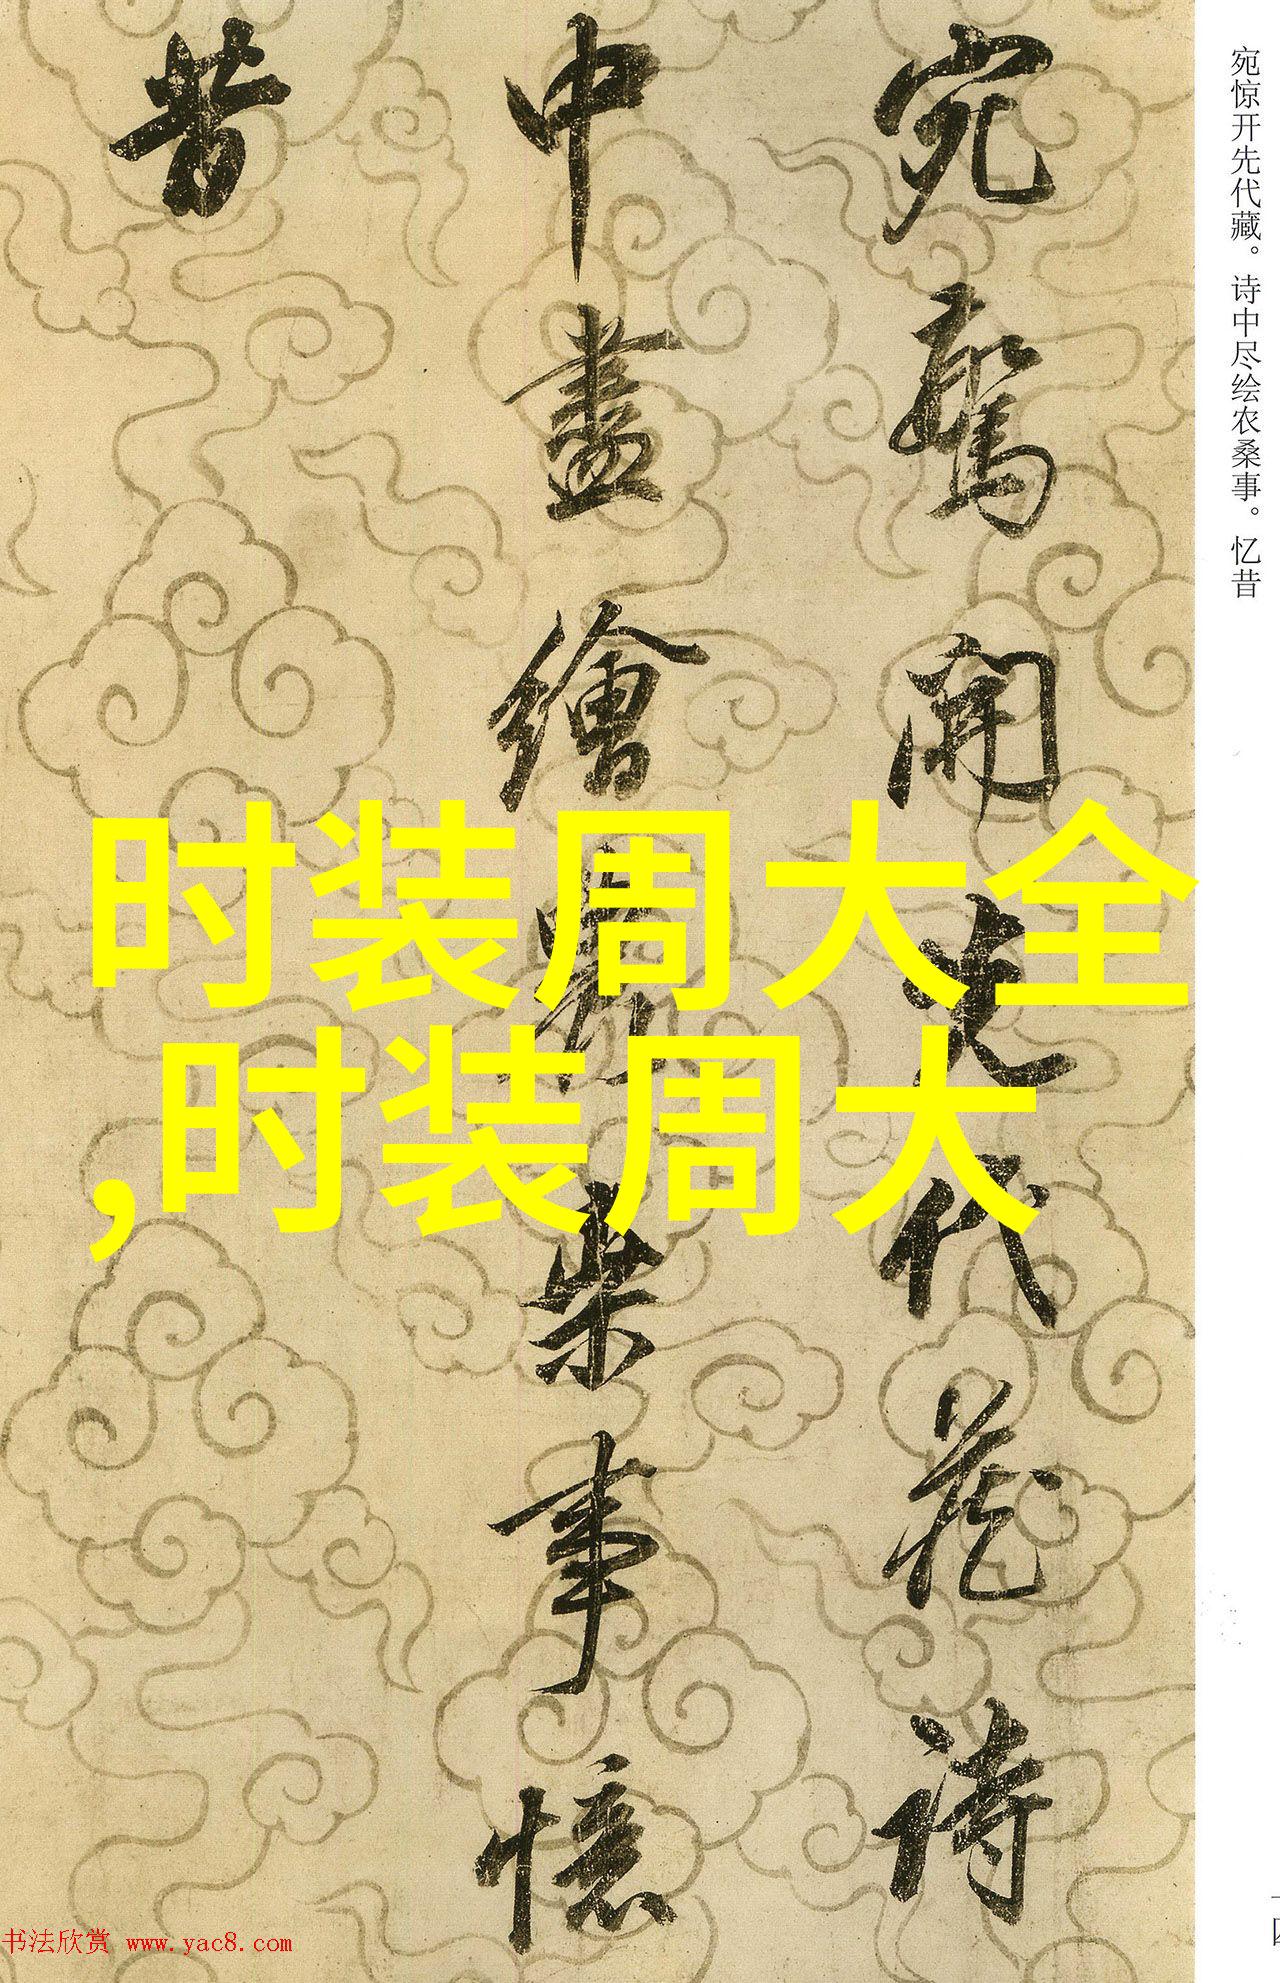 宛驚開先代藏詩
中盡繪農桒事憶
昔
宛惊开先代藏。诗中尽绘农桑事。忆昔
时装周大全
,时装周大
书法欣赏 www.yac8.com